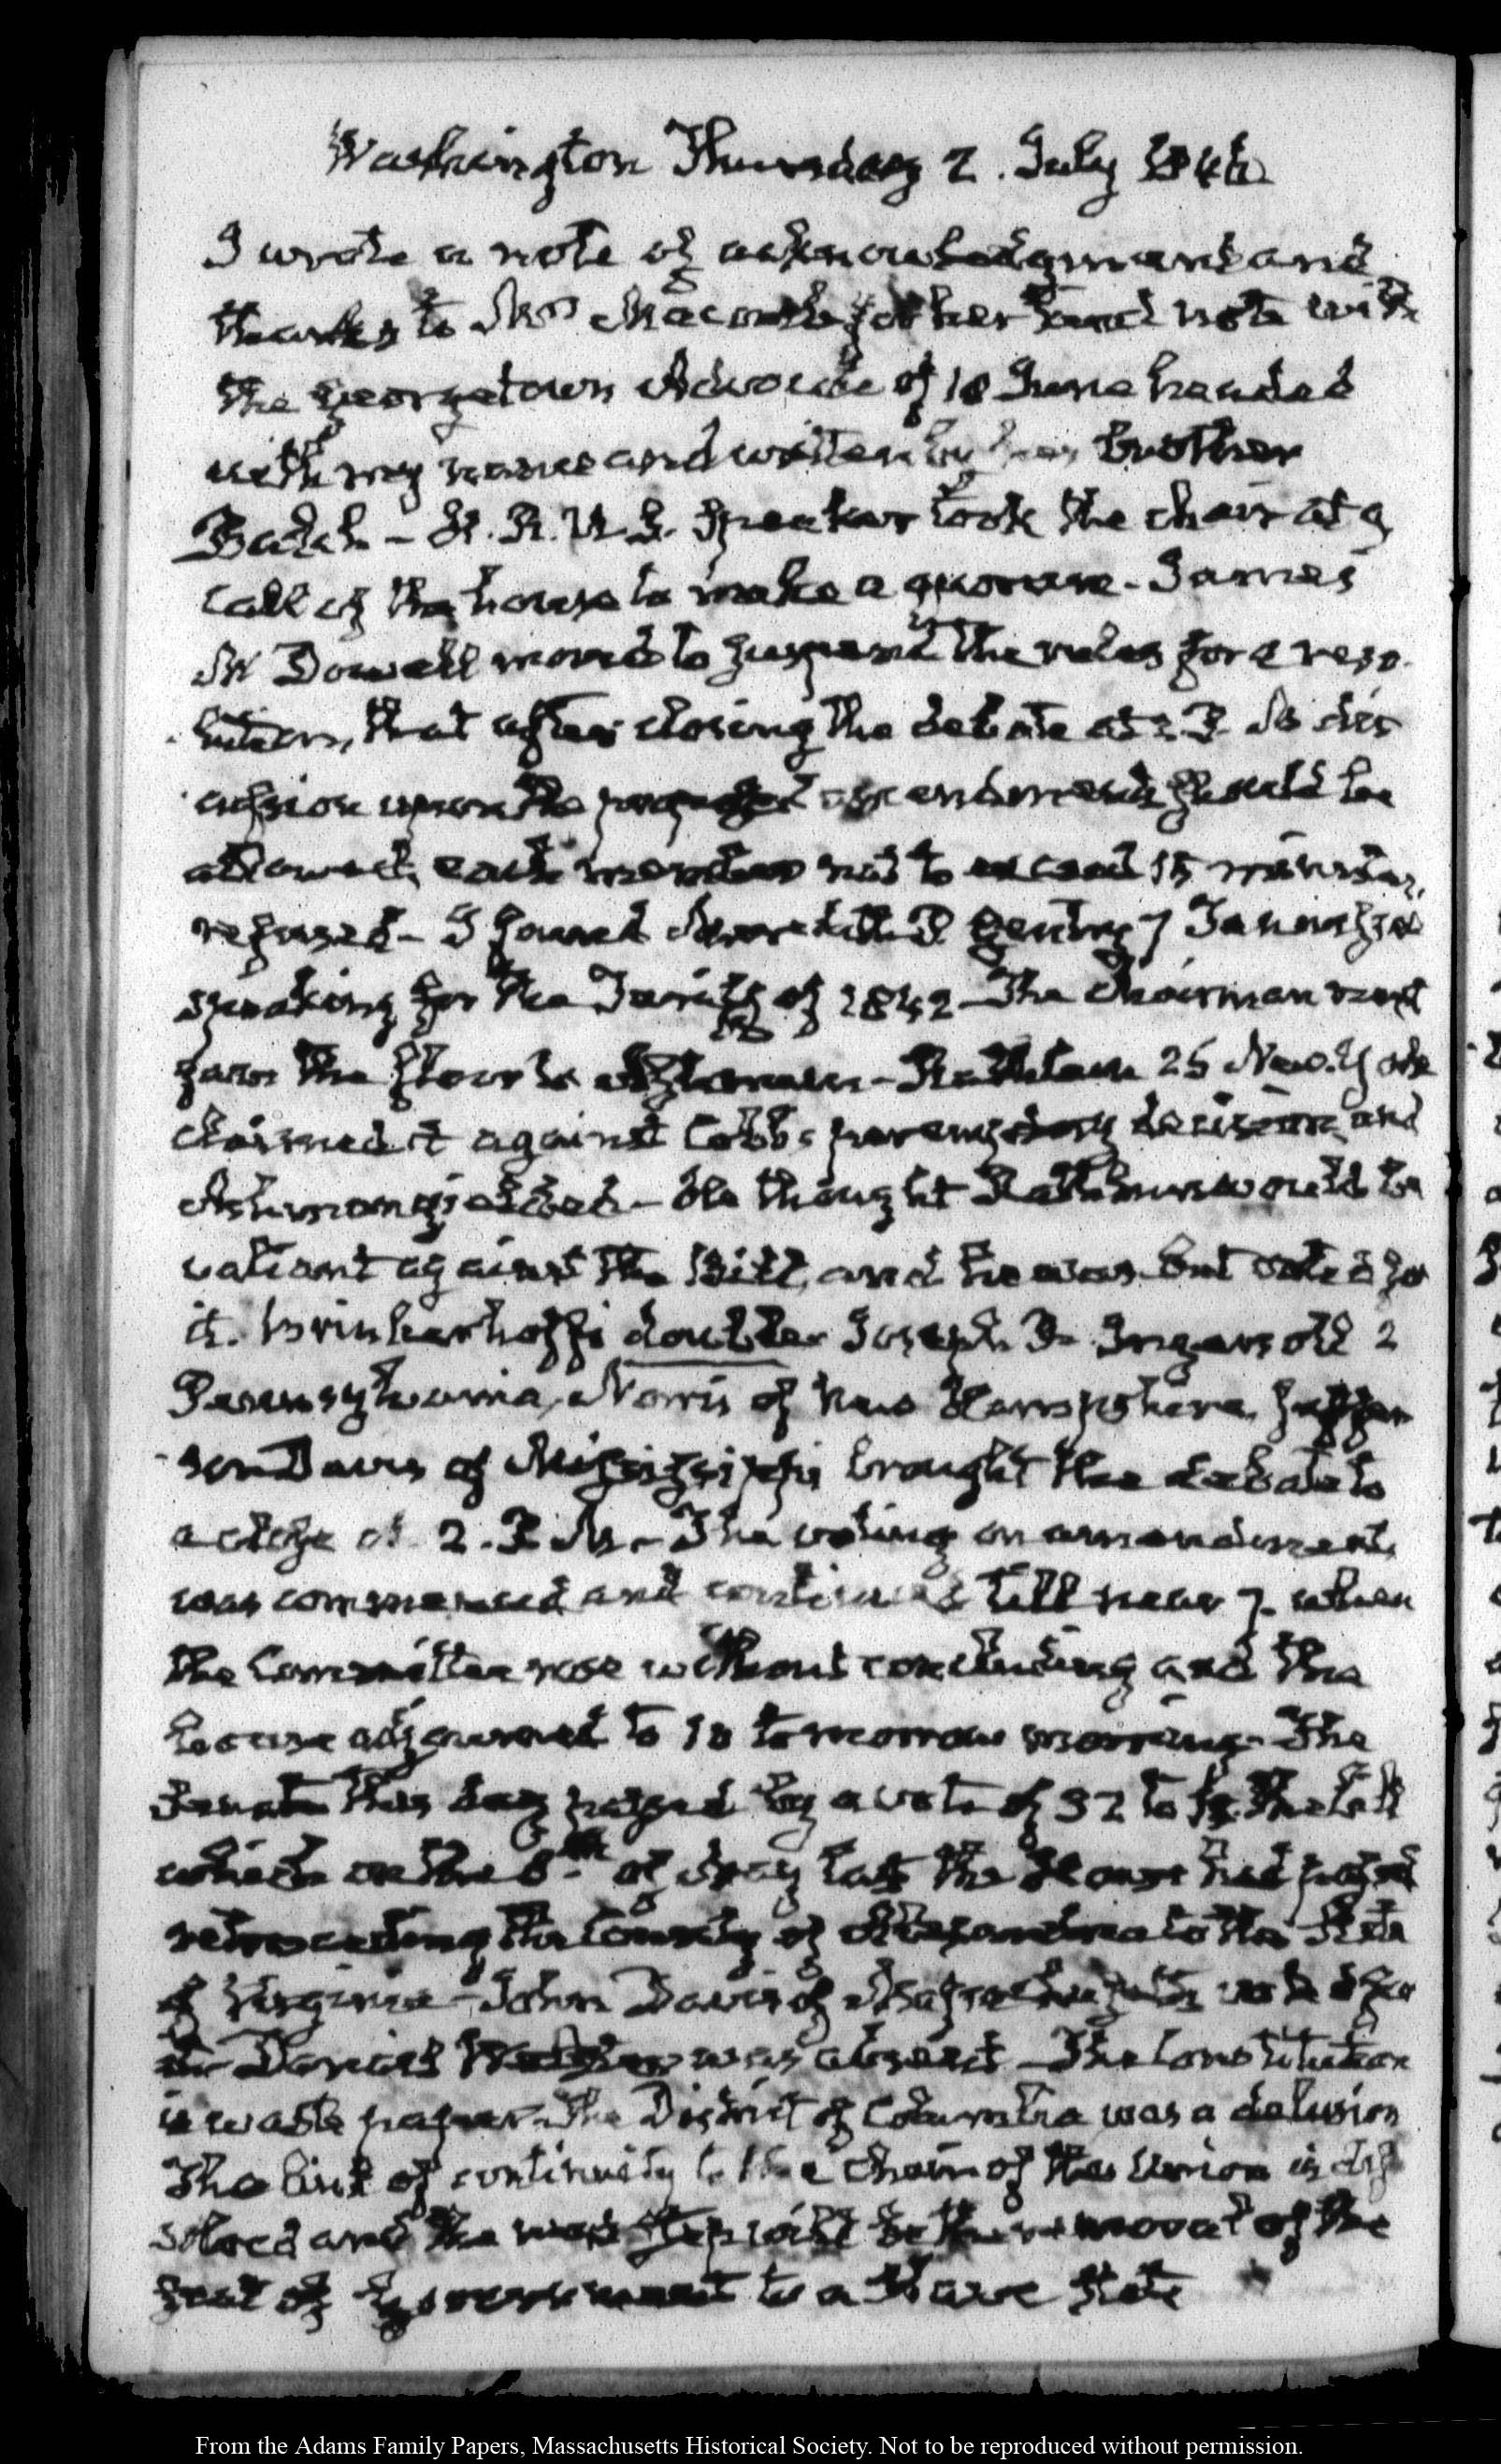 Washington Thursday 2. July 1846
I wrote a note of acknowledgment and
thanks to Mrs Macomb for her kind note with
the Georgetown Advocate of 18 June headed
with my name and written by her brother
Balch - H. R. U.S. Speaker took the chair at 9
call of the house to make a quorum - James
McDowell moved to suspend the rules for a reso-
lution, that after closing the debate at 2 P. M. dis
cussion upon the proposed amendments should be
allowed, each member not to exceed 15 minutes,
refused - I found Meredith P. Gentry 7 Tennessee
speaking for the Tariff of 1842 - The Chairman next
gave the floor to Ashmun - Rathbun 25 New-York
claimed it against Cobb's peremptory decision, and
Ashmun yielded - He thought Rathbun would be
valiant against the Bill, and he was but voted for
it. Brinkerhoff's double. Joseph R. Ingersoll 2
Pennsylvania, Norris of New Hampshire, Jeffer
son Davis of Mississippi brought the debate to
a close at 2. P. M. - The voting on amendments
was commenced and continued till near 7. when
the Committee rose without concluding and the
house adjourned to 10 tomorrow morning - The
Senate this day passed by a vote of 32 to 14 the bill
which on the 8th of May last the House had passed
retroceding the County of Alexandria to the State
of Virginia - John Davis of Massachusetts voted for
it - Daniel Webster was absent - The Constitution
is waste paper - The District of Columbia was a delusion
The link of continuity to the chain of the Union is dis
solved and the next step will be the removal of the
seat of Government to a Slave State
From the Adams Family Papers, Massachusetts Historical Society. Not to be reproduced without permission.